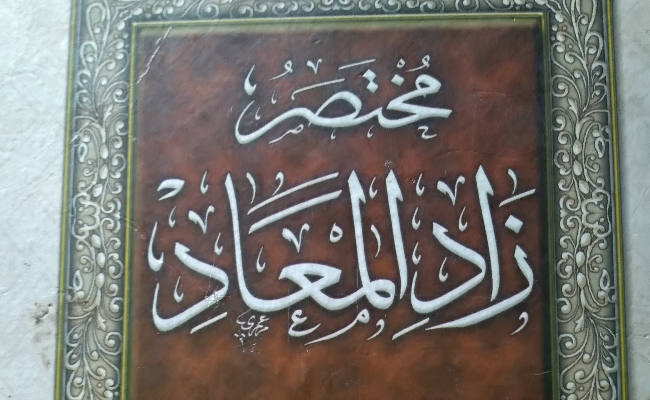 مُخْتَصَرُ
زَادِ الْمَعَادِ